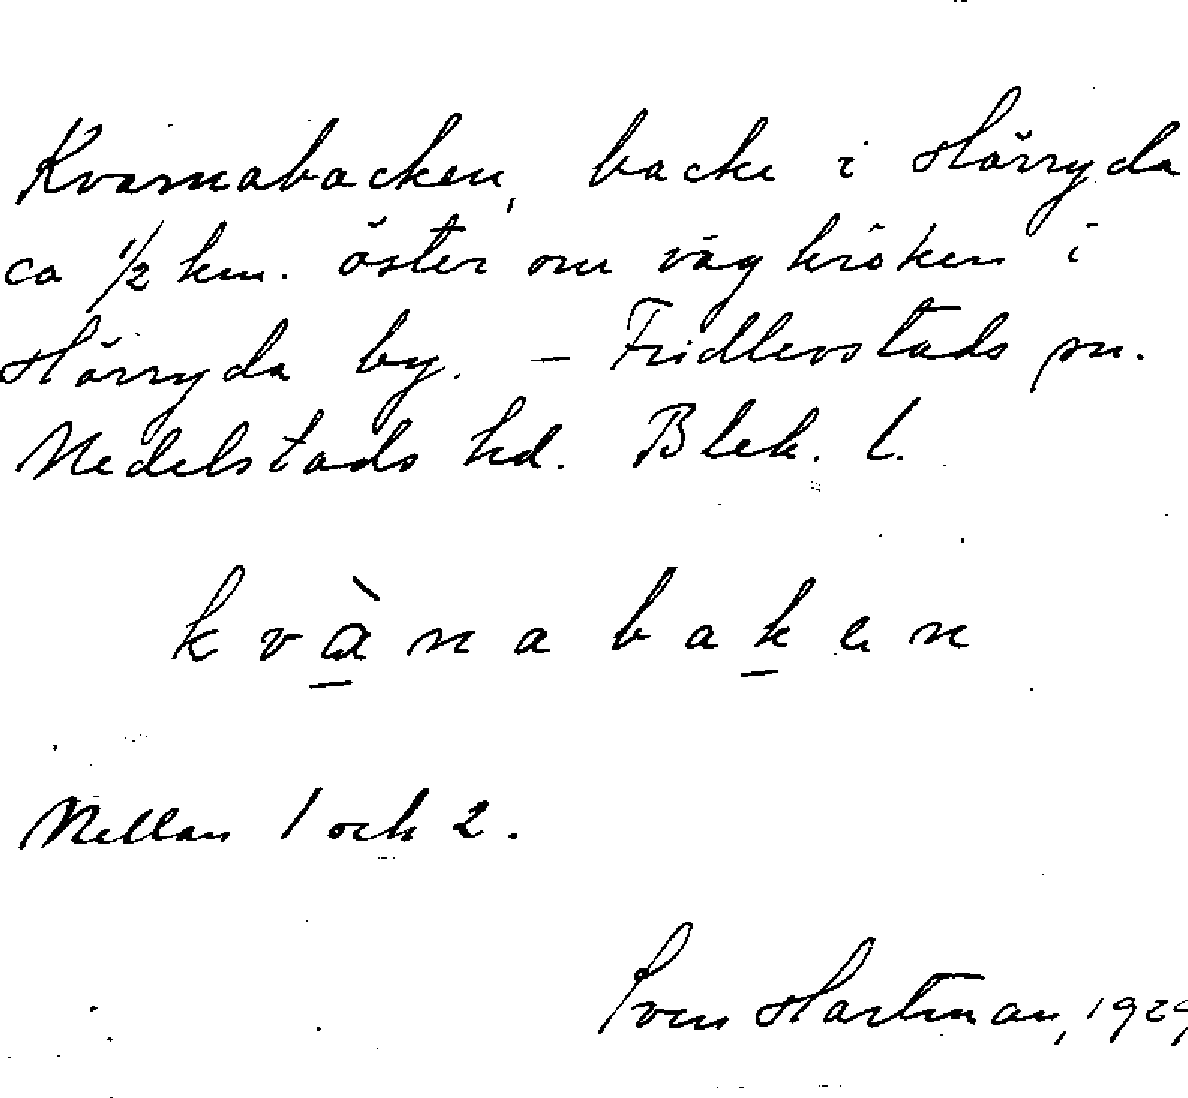 Kvarnabacken, backe i Hörryda
ca 1/2 km. öster om vägkröken i
Hörryda by. – Fridlevstads sn.
Medelstads hd. Blek. l.
kvànabaken
Mellan 1 och 2.
Sven Hartman, 1929